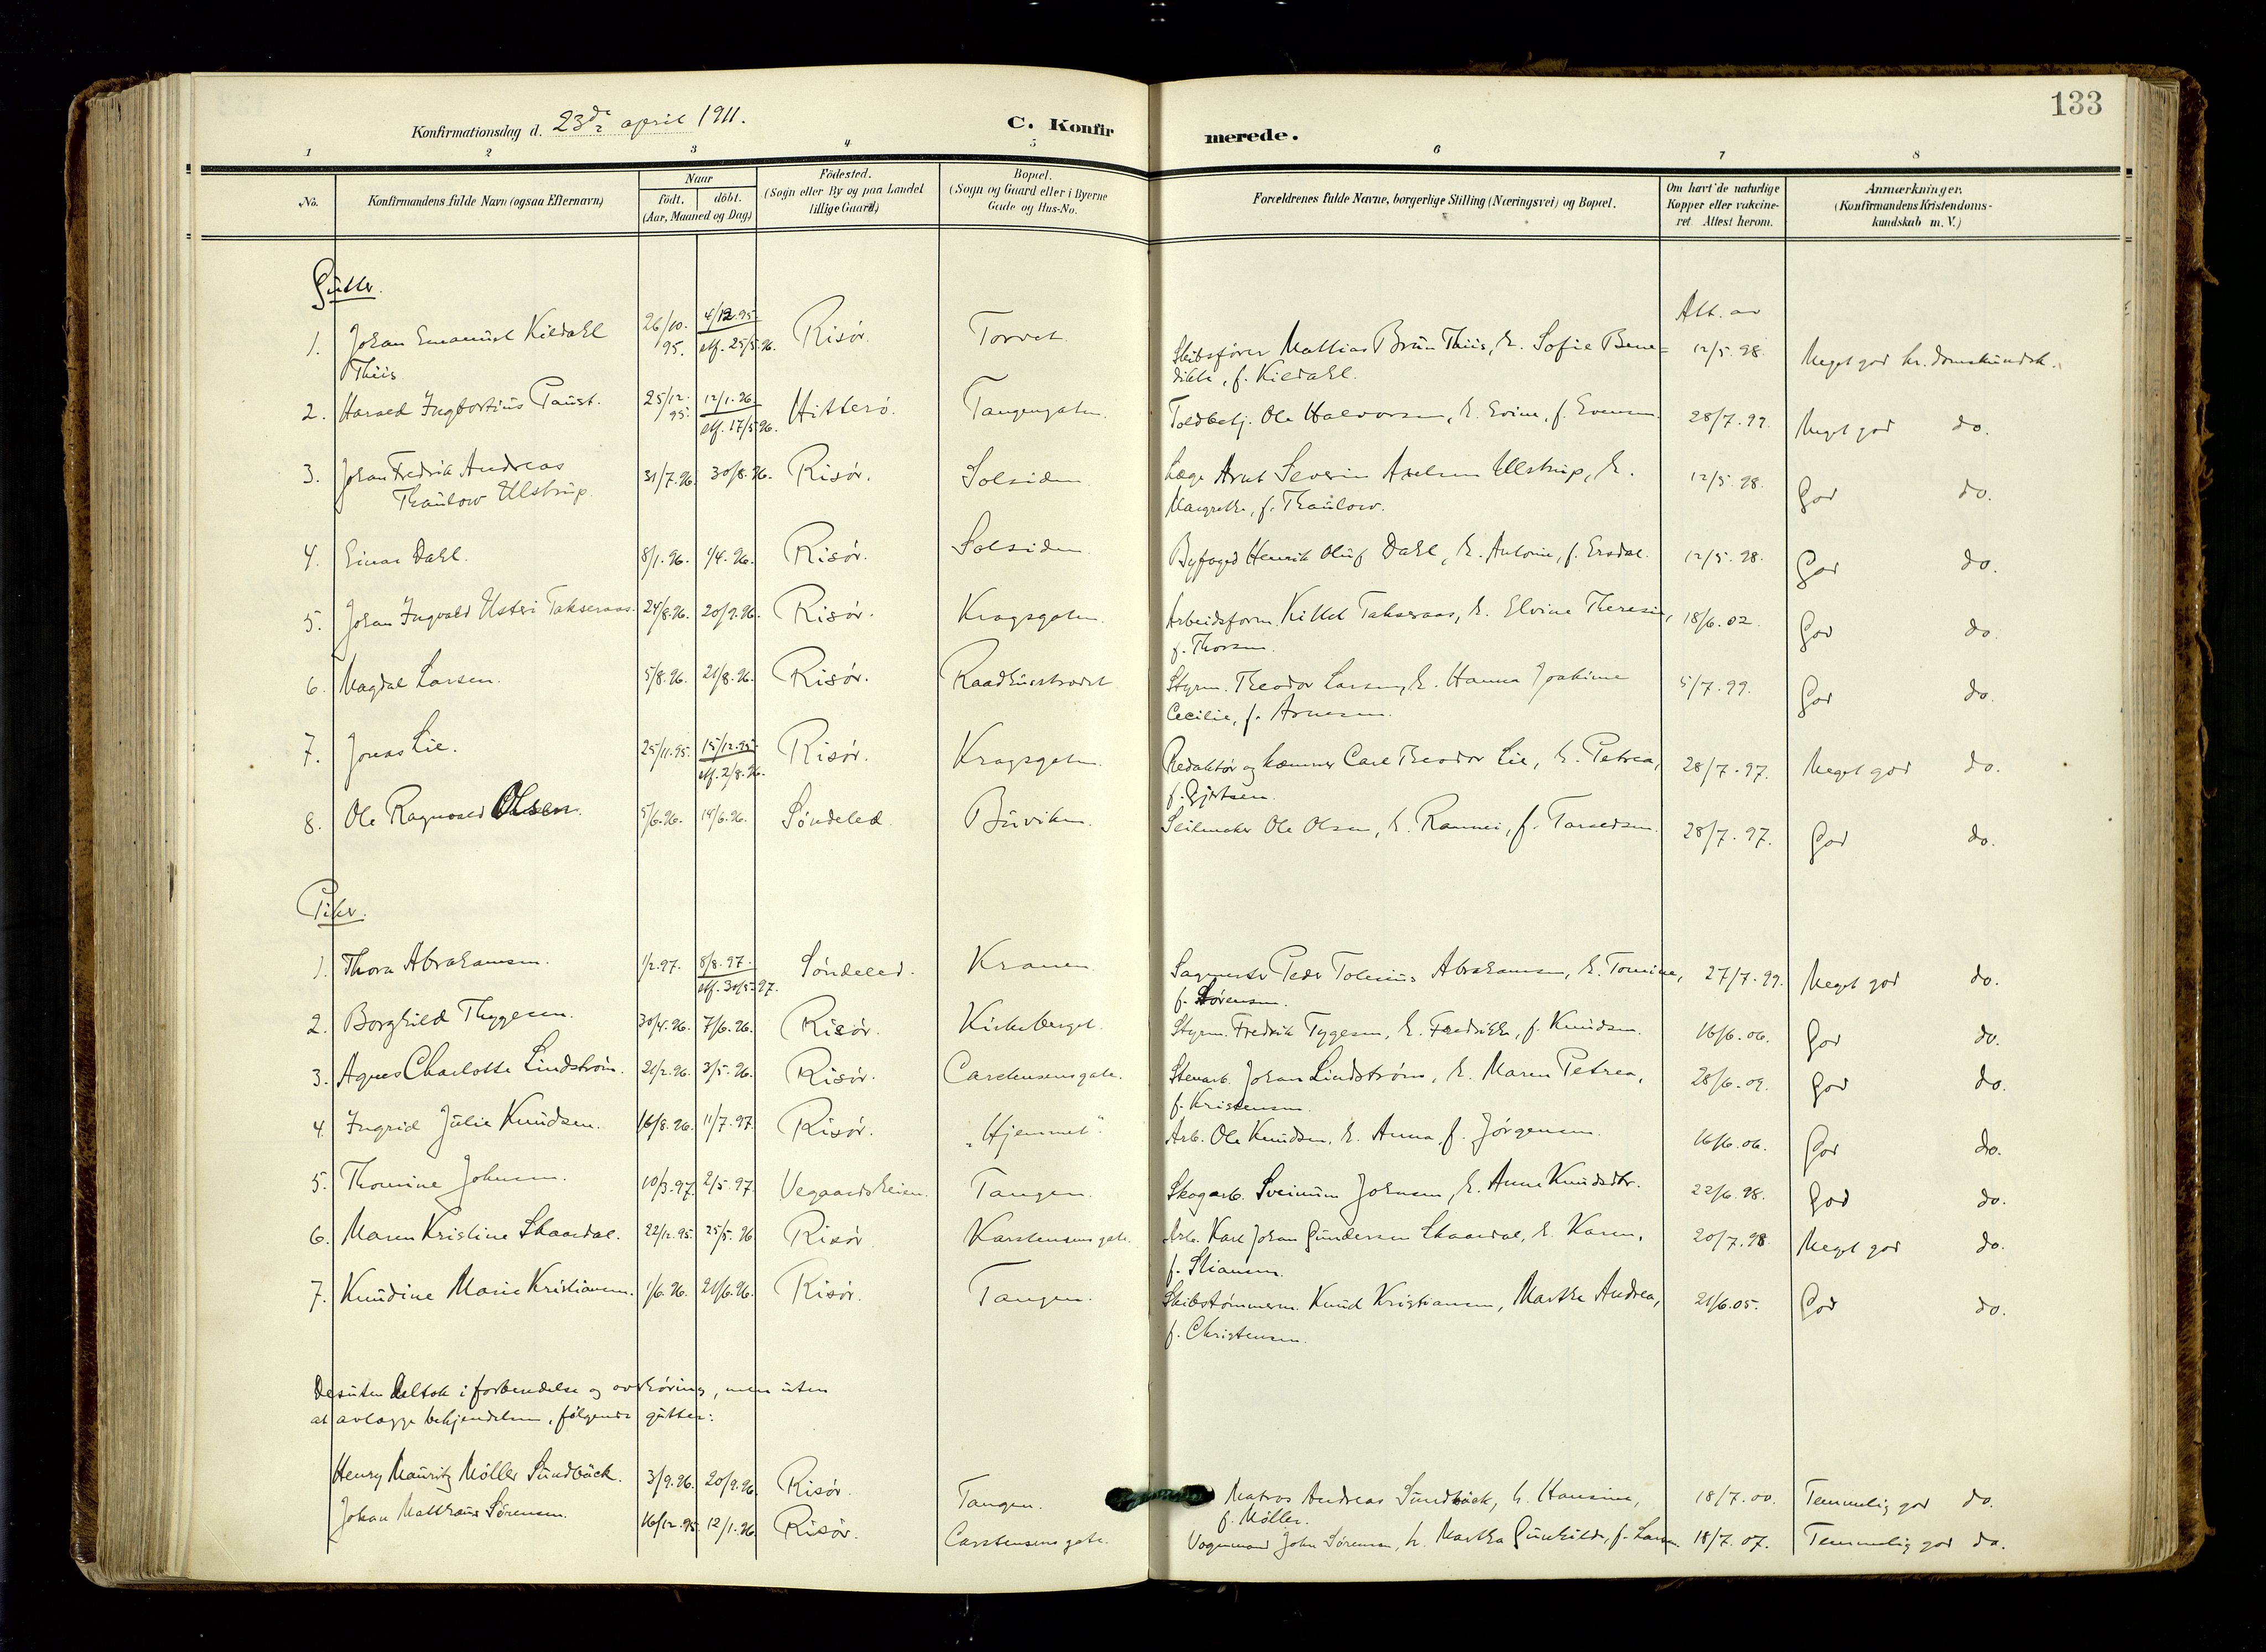 133
Konfirmationsdag d. 23de april 1911.
C. Konfirmerede.
1 2 3 4 5 6 7 8
No.
Konfirmandens fulde Navn (ogsaa Efternavn)
Naar
födt. döbt.
(Aar, Maaned og Dag)
Födested.
(Sogn eller By og paa Landet
tillige Gaard)
Bopæl.
(Sogn og Gaard eller i Byerne
Gade og Hus-No.
Forældrenes fulde Navne, borgerlige Stilling (Næringsvei) og Bopæl.
Om havt de naturlige
Kopper eller vakcine-
ret. Attest herom.
Anmærkninger.
(Konfirmandens Kristendoms-
kundskab m. V.)
Gutter.
Att. av
1. Johan Emanuel Kildahl 26/10. 4/12.95. Risør. Torvet. Skibsfører Mathias Brun Thiis, h. Sofie Bene= 12/5.98. Meget god kr.domskundsk.
Thiis 95. stf. 25/5.96. dikte, f. Kildahl.
2. Harald Ingbortius Paust. 25/12. 12/1.96 Hitterø. Tangengaten. Toldbetj. Ole Halvorsen, h. Evine, f. Evensen. 28/7.99. Meget god do.
95. stf. 17/5.96.
3. Johan Fredrik Andreas 31/7.96. 30/8.96. Risør. Solsiden. Læge Arnt Severin Axelsen Ulstrup, h. 12/5.98. God do.
Thaulow Ulstrup. Margrethe, f. Thaulow.
4. Einar Dahl. 8/1.96. 1/4.96. Risør. Solsiden. Byfoged Henrik Oluf Dahl, h. Antonie, f. Ersdal. 12/5.98. God do.
5. Johan Ingvald Takseraas. 24/8.96. 20/9.96. Risør. Kragsgaten. Arbeidsform. Kittel Takseraas, h. Elvine Theresie, 18/6.02. God do.
f. Thorsen.
6. Magdal Larsen. 5/8.96. 21/8.96. Risør. Raadhusstrædet Styrm. Theodor Larsen, h. Hanna Joakime 5/7.99. God do.
Cecilie, f. Arnesen.
7. Jonas Lie. 25/11.95. 15/12.95. Risør. Kragsgaten. Redaktør og kæmner Carl Theodor Lie, h. Petrea, 28/7.97. Meget god do.
stf. 2/8.96. f. Gjertsen.
8. Ole Ragnvald Olsen. 5/6.96. 14/6.96. Søndeled. Buviken. Seilmaker Ole Olsen, h. Rannei, f. Tarjedsen. 28/7.97. God do.
Piker.
1. Thora Abrahamsen. 1/2.97. 8/8.97. Søndeled. Kranen. Sagmester Peder Tobias Abrahamsen, h. Tomine, 27/7.99. Meget god do.
stf. 30/5.97. f. Sørensen.
2. Borghild Thygesen. 30/4.96. 7/6.96. Risør. Kirkeberget. Styrm. Fredrik Tygesen, h. Fredrikke, f. Knudsen. 16/6.06. God do.
3. Agnes Charlotte Lindstrøm. 21/2.96. 3/5.96. Risør. Carstensensgate. Stenarb. Johan Lindstrøm, h. Maren Petrea, 28/6.09. God do.
f. Kristensen.
4. Ingrid Julie Knudsen. 16/8.96. 11/7.97. Risør. "Hjemmet". Arb. Ole Knudsen, h. Anna, f. Jørgensen. 16/6.06. God do.
5. Thomine Johnsen. 10/3.97. 2/5.97. Vegaardsheien. Tangen. Skogarb. Sveinum Johnsen, h. Anne Knudsdtr. 22/6.98. God do.
6. Maren Kristine Skaardal. 22/12.95. 25/5.96 Risør. Karstensensgate. Arb. Karl Johan Gundersen Skaardal, h. Karen, 20/7.98. Meget god do.
f. Stiansen.
7. Knudine Marie Kristiansen. 1/6.96. 21/6.96. Risør. Tangen. Skibstømmerm. Knud Kristiansen, Marthe Andrea, 21/6.05. God do.
f. Christensen.
Desuten deltok i forberedelse og overhøring, men uten
at avlægge bekjendelsen, følgende gutter:
Henry Mauritz Møller Sundbäck. 3/9.96. 20/9.96. Risør. Tangen. Matros Andreas Sundbäck, h. Hansine, 18/7.00. Temmelig god do.
f. Møller.
Johan Matthæus Sørensen. 16/12.95. 12/1.96. Risør. Carstensensgate. Vognmand John Sørensen, h. Martha Gunhilde, f. Larsen. 18/7.07. Temmelig god do.